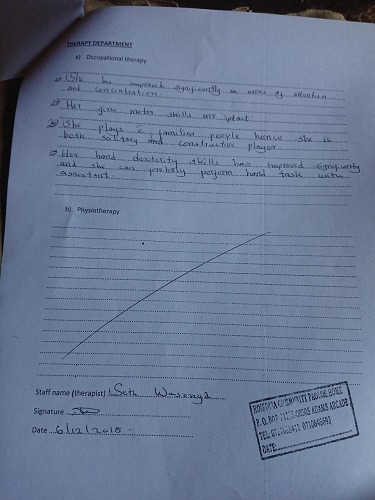 THERAPY DEPARTMENT
a) Occupational therapy
She has improved significantly in areas of attention
and concentration.
Her fine motor skills are intact.
She plays c familiar people hence she is
both solitary and constructive player.
Her hand dexterity skills has improved significantly
and she can probably perform hand task with
assistant.
b) Physiotherapy
Staff name (therapist) Seth Wasonga
Signature
Date 6/12/2018
COMMUNITY HOME
P.O. BOX ADAMS ARCADE
TEL:
DATE: